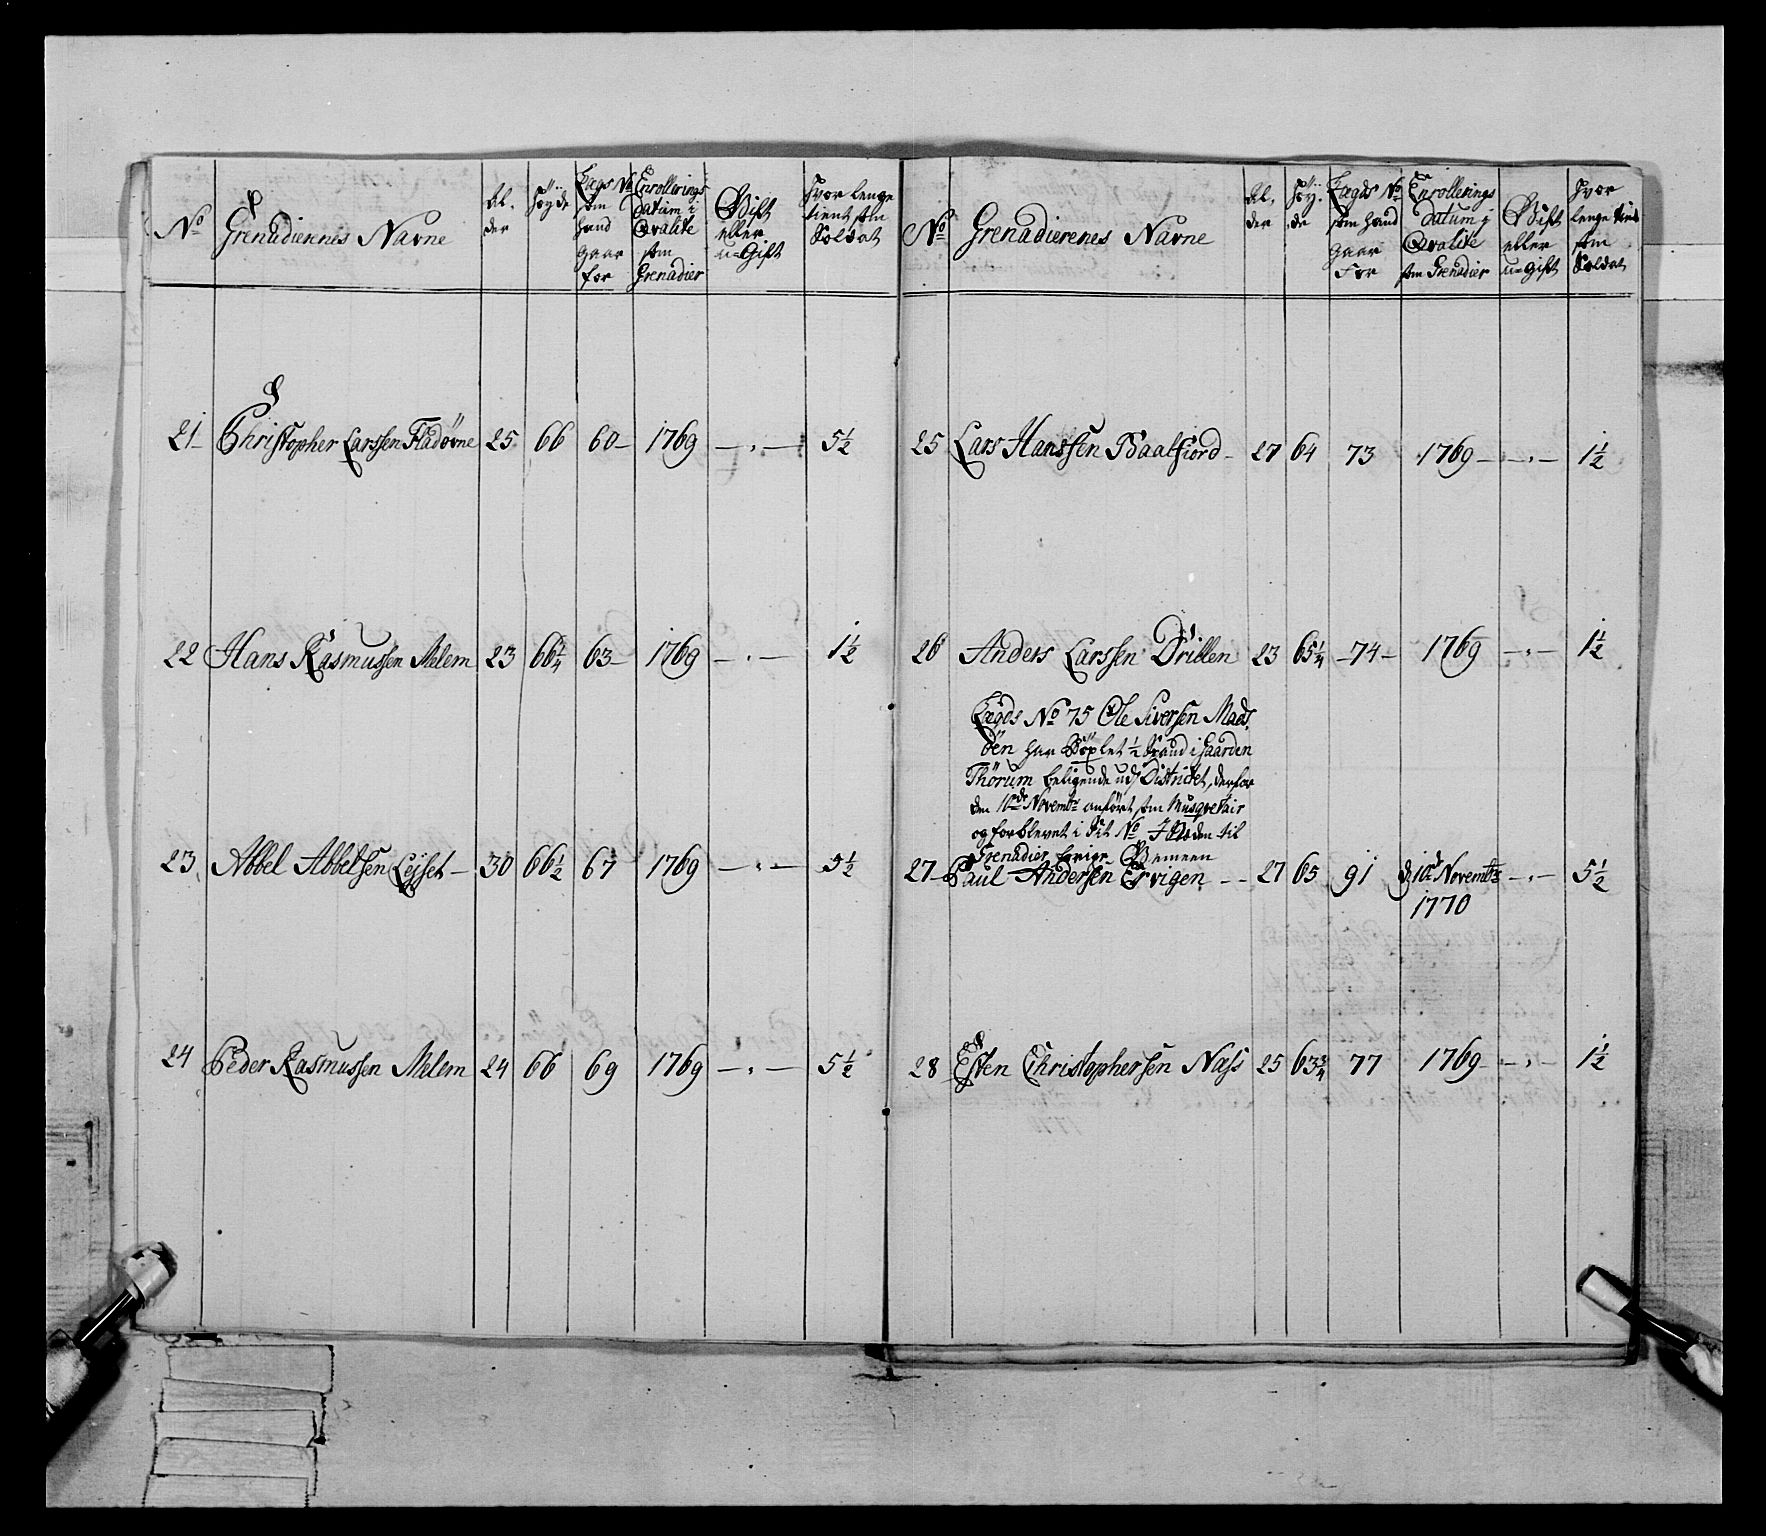 No
Grenadierenes Navne
Al-
der
Höyde
Lægs No
som
hand
gaar
for
Enrollerings
datum i
Qvalité
som
Grenadier
Gift
eller
u=Gift
Hvor lenge
tient som
Soldat
21 Christopher Larssen Fladövne 25 66 60 1769 — . — 5½
22 Hans Rasmussen Melem 23 66¼ 63 1769 — . — 1½
23 Abbel Abbelsen 30 66½ 67 1769 — . — 5½
24 Peder Rasmussen Melem 24 66 69 1769 — . — 5½
No
Grenadierenes Navne
Al-
der
Höy-
de
Lægds No
som hand
gaar
For
Enrollerings
datum i
Qvalité
som Grenadier
Gift
eller
u=gift
Hvor
lenge tient
som
Soldat
25 Lars Hanssen Baalfiord 27 64 73 1769 — . — 1½
26 Anders Larssen Drillen 23 65¼ 74 1769 — . — 1½
Lægds No 75 Ole Siversen Mads
öen har Böxlet ½ Brand i Gaarden
Thörum beligende ud Districtet, derfor
den 10de Novembr anfört som Musqvetair
og forblevet i Sit No
Grenadier
27 Paul Andersen Ervigen 27 65 91 d: 10de Novembr — . — 5½
1770
28 Esten Christophersen Nass 25 63¾ 77 1769 — . — 1½